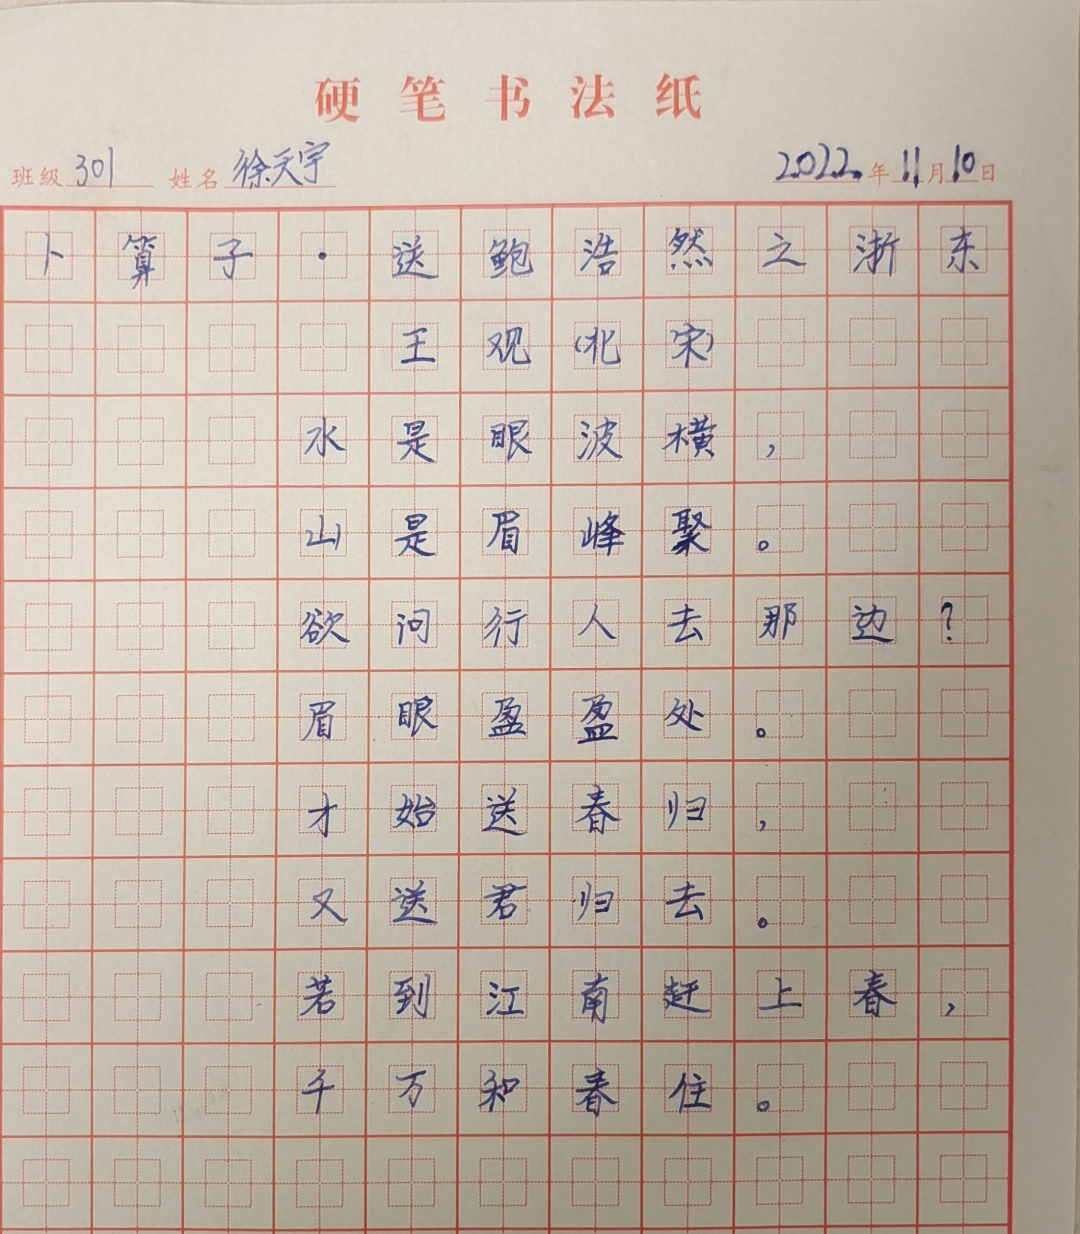 硬笔书法纸
班级 301 姓名 徐天宇 2022.年11月10日
卜算子·送鲍浩然之浙东
王观(北宋)
水是眼波横，
山是眉峰聚。
欲问行人去那边？
眉眼盈盈处。
才始送春归，
又送君归去。
若到江南赶上春，
千万和春住。